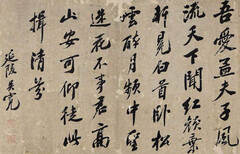 吾愛孟夫子風
流天下聞紅顏棄
軒冕白首臥松
雲醉月頻中聖
迷花不事君高
山安可仰徒此
揖清芬